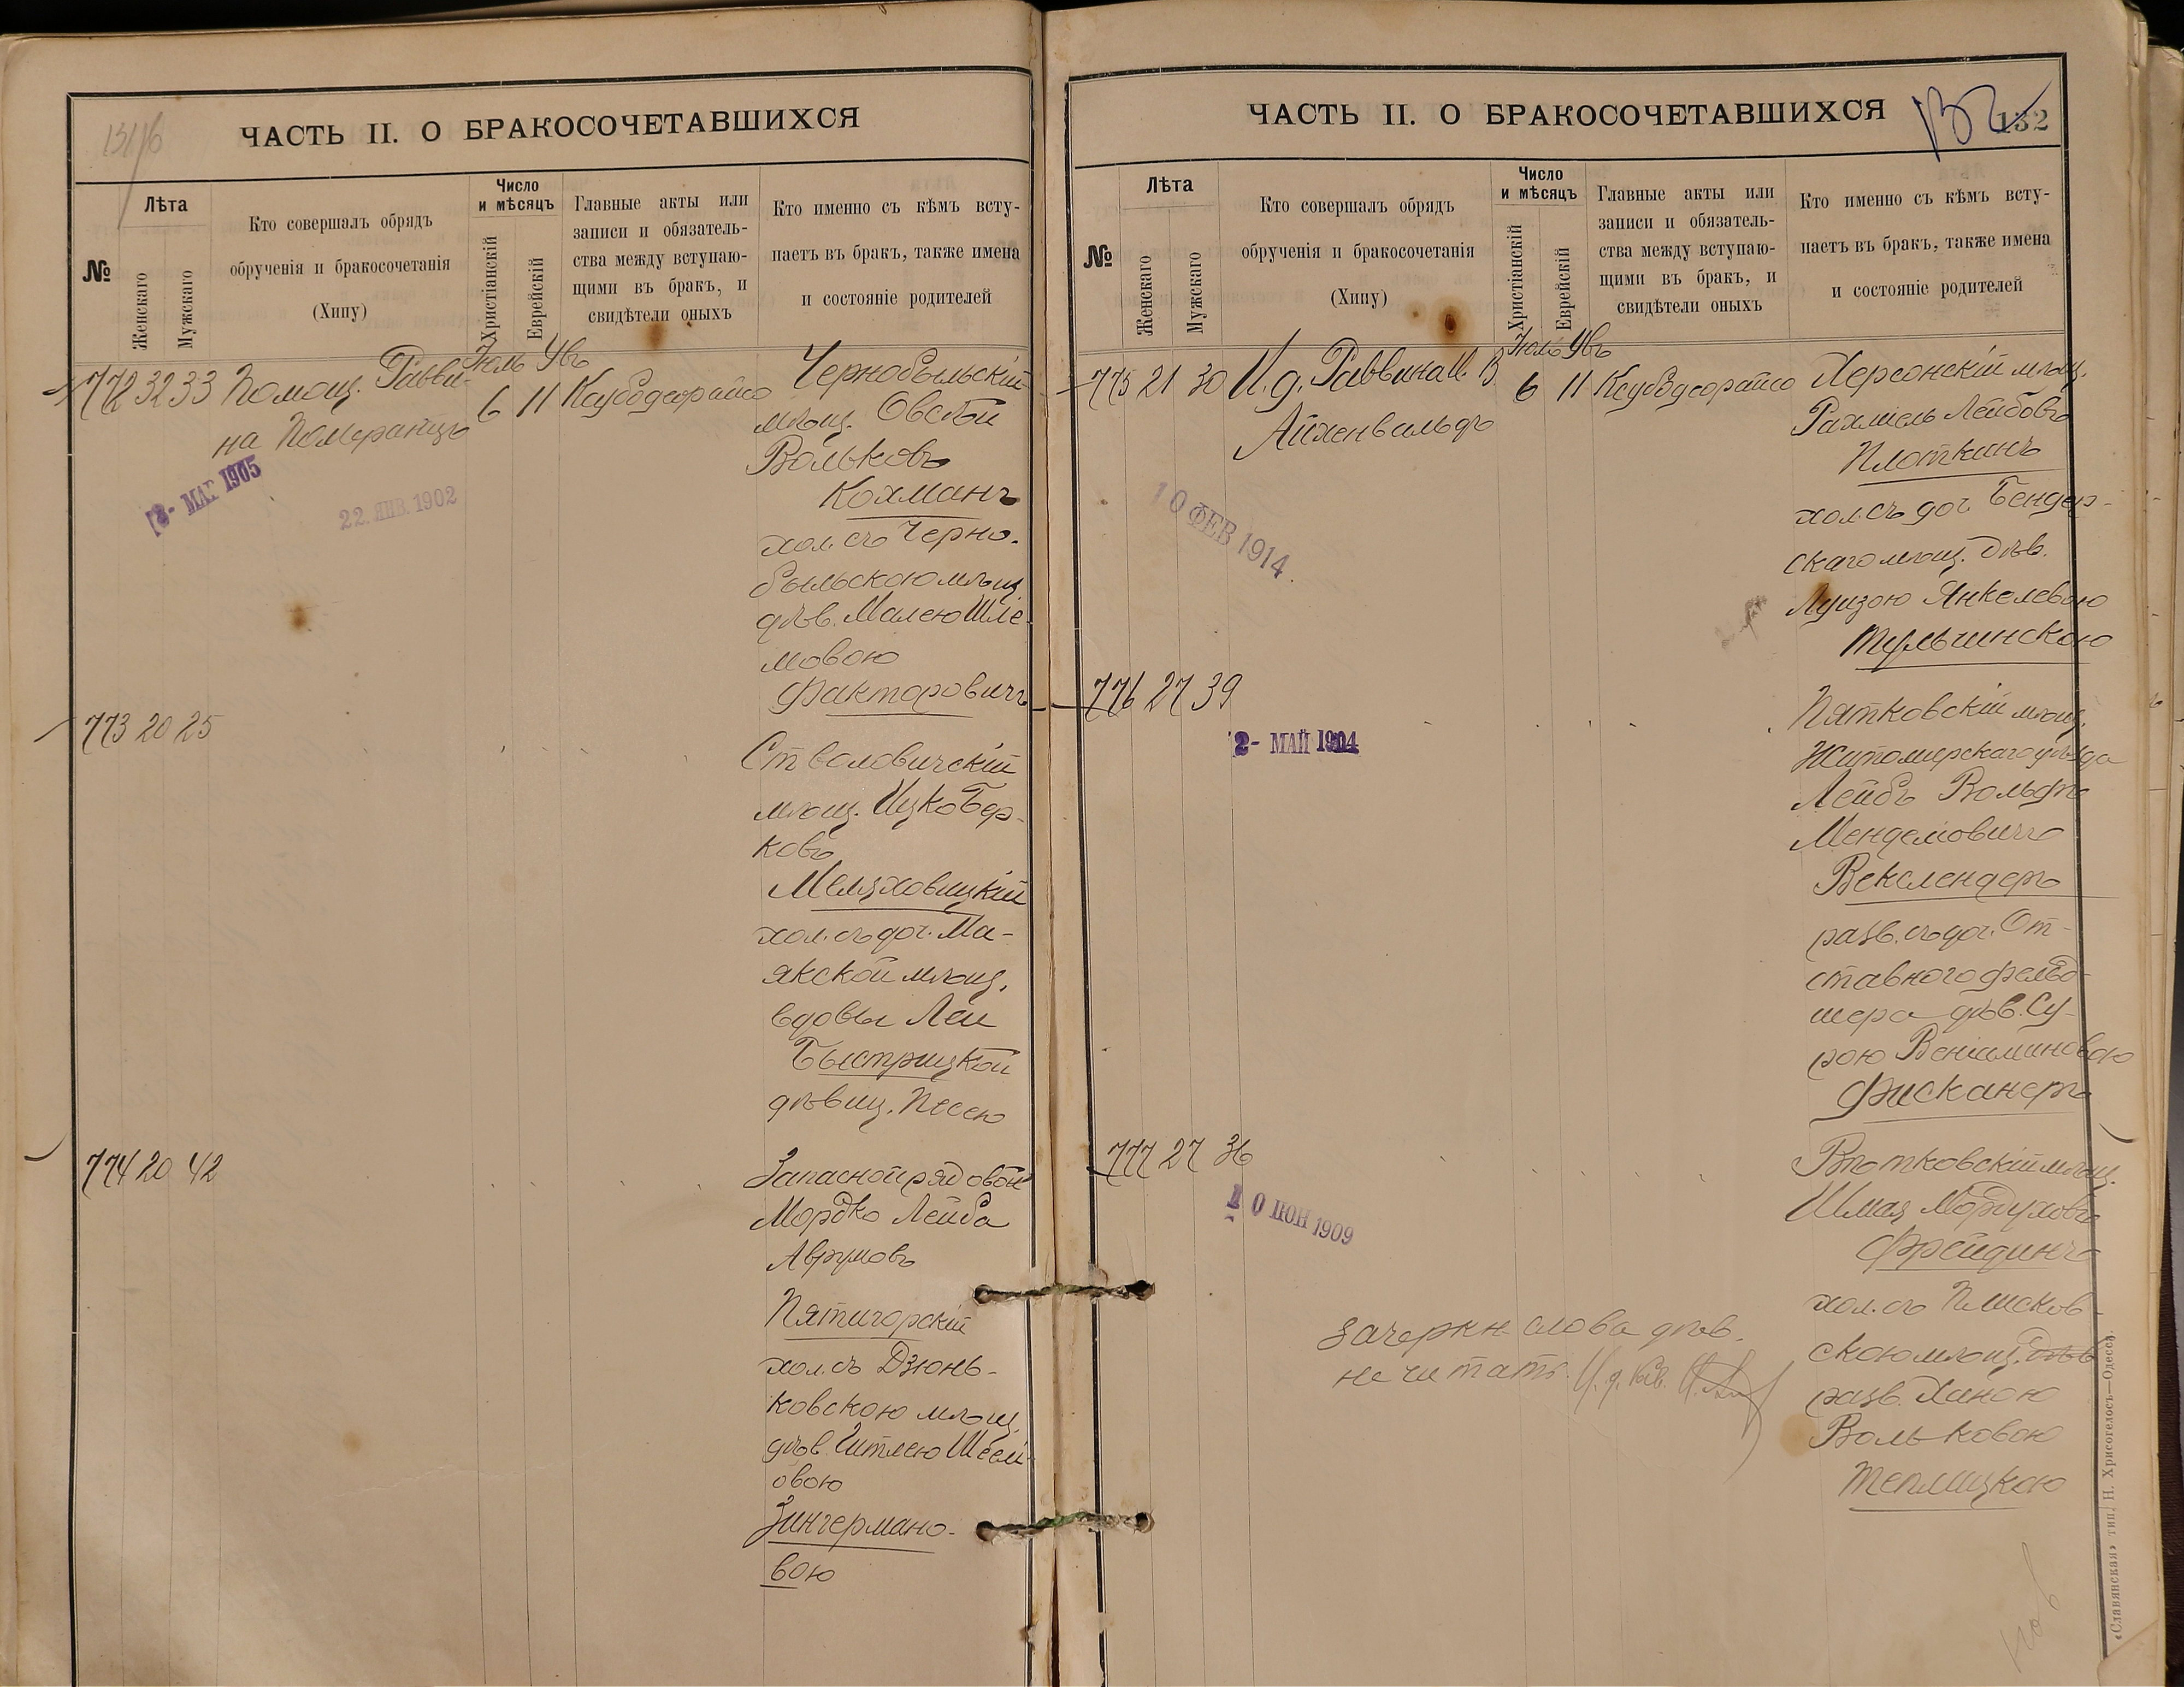 131/б
ЧАСТЬ II. О БРАКОСОЧЕТАВШИХСЯ
№
Лѣта
Женскаго
Мужскаго
Кто совершалъ обрядъ
обрученія и бракосочетанія
(Хипу)
Число
и мѣсяцъ
Христіанскій
Еврейскій
Главные акты или
записи и обязатель-
ства между вступаю-
щими въ бракъ, и
свидѣтели оныхъ
Кто именно съ кѣмъ всту-
паетъ въ бракъ, также имена
и состояніе родителей
772 32 33 Помощ. Равви-
на Померанцъ
Іюль
6 11
Чернобыльскій
мѣщ. Овсѣй
Вольковъ
Кохманъ
хол. съ Черно-
быльскою мѣщ.
дѣв. Малею Шле-
мовою
Факторовичъ
МАР 1905
22. ЯНВ. 1902
773 20 25
Стволовичскій
мѣщ. Ицко Бер-
ковъ
хол. съ доч. Ма-
якской мѣщ.
вдовы Леи
Быстрицкой
дѣвиц. Песею
774 20 42
Запасной рядовой
Мордко Лейба
Аврумовъ
Пятигорскій
хол. съ Дзюнь-
ковскою мѣщ.
дѣв. Итлею
овою
Зингермано-
вою
ЧАСТЬ II. О БРАКОСОЧЕТАВШИХСЯ
132
№
Лѣта
Женскаго
Мужскаго
Кто совершалъ обрядъ
обрученія и бракосочетанія
(Хипу)
Число
и мѣсяцъ
Христіанскій
Еврейскій
Главные акты или
записи и обязатель-
ства между вступаю-
щими въ бракъ, и
свидѣтели оныхъ
Кто именно съ кѣмъ всту-
паетъ въ бракъ, также имена
и состояніе родителей
775 21 30 И. д. Раввина
Айхенвальдъ
Іюль
6 11
Херсонскій мѣщ.
Рахмиль Лейбовъ
Плоткинъ
хол. съ доч. Бендер-
скаго мѣщ. дѣв.
Луизою Янкелевою
Тульчинскою
10 ФЕВ 1914
776 27 39
2- МАЙ 1904
Пятковскій мѣщ.
Житомирскаго уѣзда
Лейбъ Вольфъ
Менделовичъ
Векслендеръ
разв. съ доч. От-
ставного фельд-
шера дѣв. Су-
рою Веніаминовою
Фисканеръ
777 27 36
10 ІЮН 1909
мѣщ.
Шмая Мордуховъ
Фрейдинъ
хол. съ Плисков-
скою мѣщ. дѣв.
разв. Ханою
Вольковою
Теплицкою
Зачеркн. слова дѣв.
не читать. И. д. Рав.
«Славянская» тип. Н. Хрисогелосъ—Одесса.